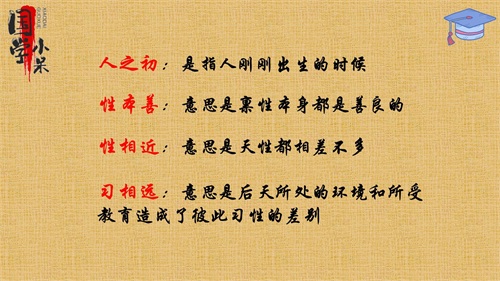 国学
小米
人之初：是指人刚刚出生的时候
性本善：意思是禀性本身都是善良的
性相近：意思是天性都相差不多
习相远：意思是后天所处的环境和所受
教育造成了彼此习性的差别